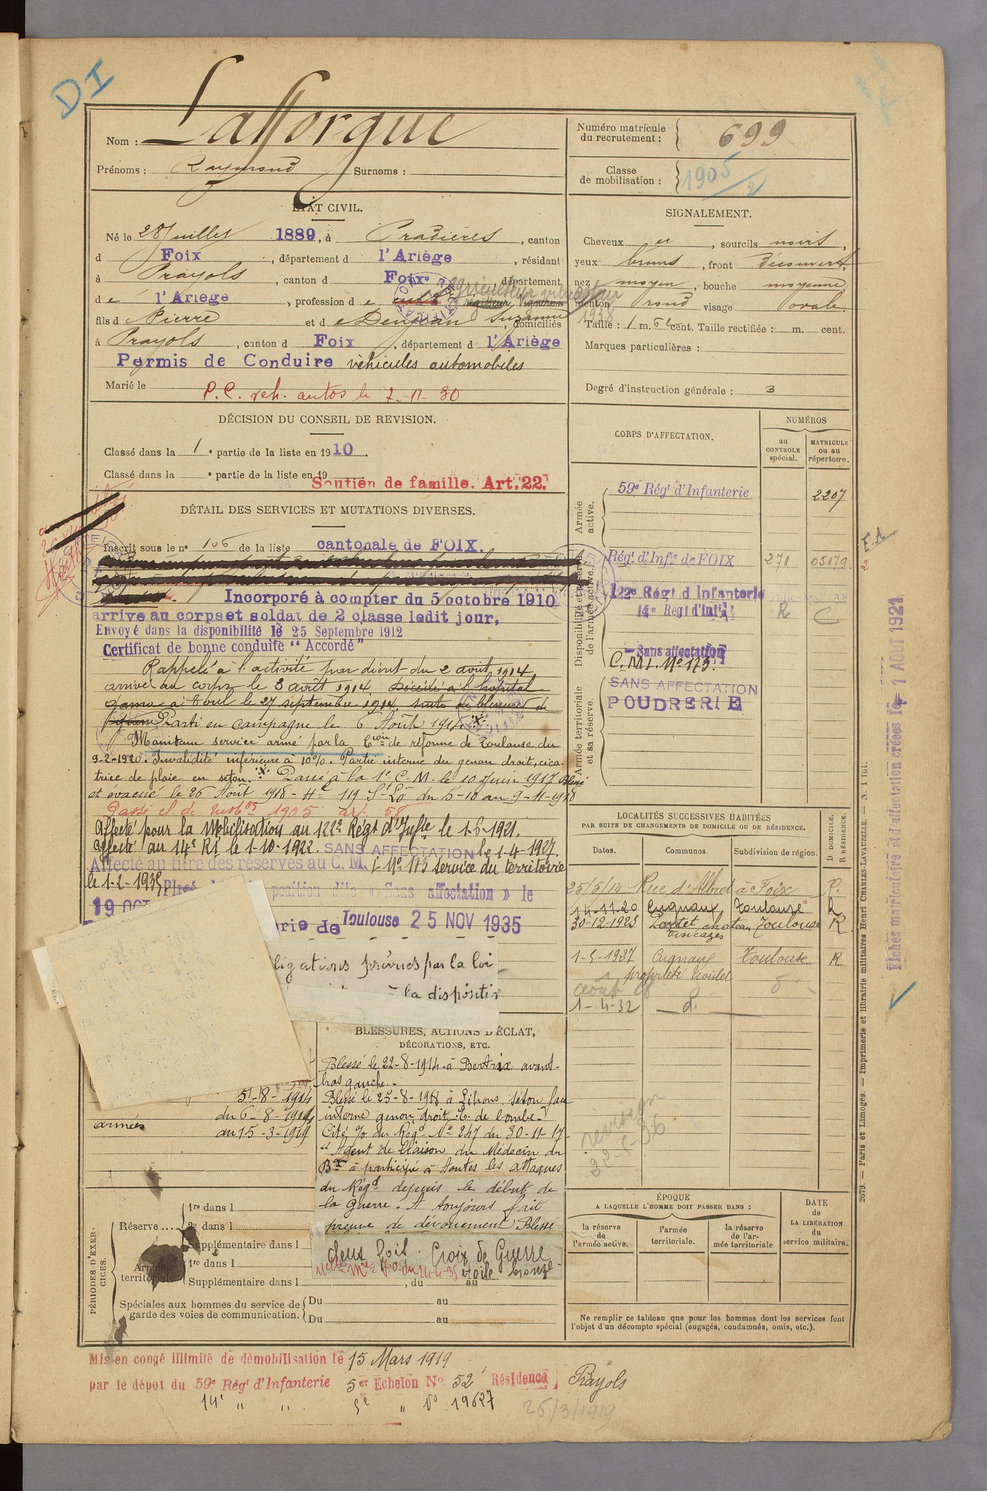 DI
Nom : Lafforgue
Prénoms : Raymond Surnoms :
Numéro matricule du recrutement : 699
Classe de mobilisation : 1905/2
ÉTAT CIVIL.
Né le 28 Juillet 1889, à Pradières, canton
d Foix, département d l'Ariège, résidant
à Prayols, canton d Foix, département
d e l'Ariège, profession d e
fils d e Pierre et d e Dengean Suzanne, domiciliés
à Prayols, canton d Foix, département d l'Ariège
Permis de Conduire véhicules automobiles
Marié le
P.C. veh. autos le 7-11-30
SIGNALEMENT.
Cheveux et, sourcils noirs,
yeux bruns, front découvert,
nez moyen, bouche moyenne
menton rond visage ovale.
Taille : 1 m. 61 cent. Taille rectifiée : m. cent.
Marques particulières :
Degré d'instruction générale : 3
DÉCISION DU CONSEIL DE REVISION.
Classé dans la 1e partie de la liste en 1910.
Classé dans la e partie de la liste en 19
Soutien de famille. Art. 22.
DÉTAIL DES SERVICES ET MUTATIONS DIVERSES.
Inscrit sous le n° 106 de la liste cantonale de FOIX.
Incorporé à compter du 5 octobre 1910
arrive au corps et soldat de 2 classe ledit jour,
Envoyé dans la disponibilité le 25 Septembre 1912
Certificat de bonne conduite "Accordé"
Rappelé à l'activité par décret du 2 août 1914
arrivé au corps le 3 août 1914, Décédé à l'hôpital
le 27 septembre 1914, suite de blessures de
Parti en campagne le 6 Août 1914
Maintenu service armé par la Cion de réforme de Toulouse du
9-2-1920. Invalidité inférieure à 10%. Partie interne du genou droit, cica-
trice de plaie en séton. Passé à la 1e C.M. le 10 juin 1917 Blessé
et évacué le 26 Août 1918 - H 119 St Lô du 5-10 au 9-11-1918
Passé cl. de mobon 1905 art 58
Affecté pour la Mobilisation au 122e Régt d'Infie le 1-6-1921.
Affecté au 14e RI le 1-10-1922. SANS AFFECTATION le 1-4-1927.
Affecté au titre des réserves au C. M. I. N° 173 service du territoire
le 1-2-1935 position dite « Sans affectation » le
19 OCT
rie de Toulouse 25 NOV 1935
ligations prévues par la loi
à la disposition
CORPS D'AFFECTATION.
NUMÉROS
au CONTROLE spécial.
MATRICULE ou au répertoire.
Armée active.
59e Régt d'Infanterie 2207
Disponibilité et réserve de l'armée active.
Régt d'Infie de FOIX 271 05179
122e Régt d'Infanterie
14e Régt d'Infie R C
Sans affectation
C.M.I. N° 173.
Armée territoriale et sa réserve.
SANS AFFECTATION
POUDRERIE
LOCALITÉS SUCCESSIVES HABITÉES
PAR SUITE DE CHANGEMENTS DE DOMICILE OU DE RÉSIDENCE.
Dates. Communes Subdivision de région. D DOMICILE. R RÉSIDENCE.
25/5/14 Rue d'Albret à Foix R.
14-11-20 Cugnaux Toulouse R
30-12-1923 Portet Toulouse R
1-5-1927 Cugnaux Toulouse R
1-4-32 d°
revision
22-5-36
BLESSURES, ACTIONS D'ÉCLAT,
DÉCORATIONS, ETC.
Blessé le 22-8-1914 à Bertrix avant-
bras gauche.
Blessé le 25-8-1918 à Lihons, séton face
interne genou droit E. de bombe
Cité O/ du Régt N° 247 du 30-11-17
"Agent de liaison du Médecin du
Bon a participé à toutes les attaques
du Régt depuis le début de
la guerre. A toujours fait
preuve de dévouement. Blessé
deux fois. Croix de Guerre
étoile bronze
5-8-1914
du 6-8-1914
armées au 15-3-1919
PÉRIODES D'EXERCICES.
Réserve... 1re dans l
2e dans l
Supplémentaire dans l
Armée territoriale 1re dans l
Supplémentaire dans l, du au
Spéciales aux hommes du service de garde des voies de communication. Du au
Du au
ÉPOQUE
A LAQUELLE L'HOMME DOIT PASSER DANS :
la réserve de l'armée active.
l'armée territoriale.
la réserve de l'armée territoriale
DATE de LA LIBÉRATION du service militaire.
Ne remplir ce tableau que pour les hommes dont les services font
l'objet d'un décompte spécial (engagés, condamnés, omis, etc.).
Mis en congé illimité de démobilisation le 15 Mars 1919
par le dépôt du 59e Régt d'Infanterie 5er Echelon N° 52 Résidence Prayols
14e " " 5e " N° 19627
26/3/1919
Fiches matriculaire et d'affectation créées le 1 AOUT 1921
2079. — Paris et Limoges. — Imprimerie et librairie militaires Henri CHARLES-LAVAUZELLE.